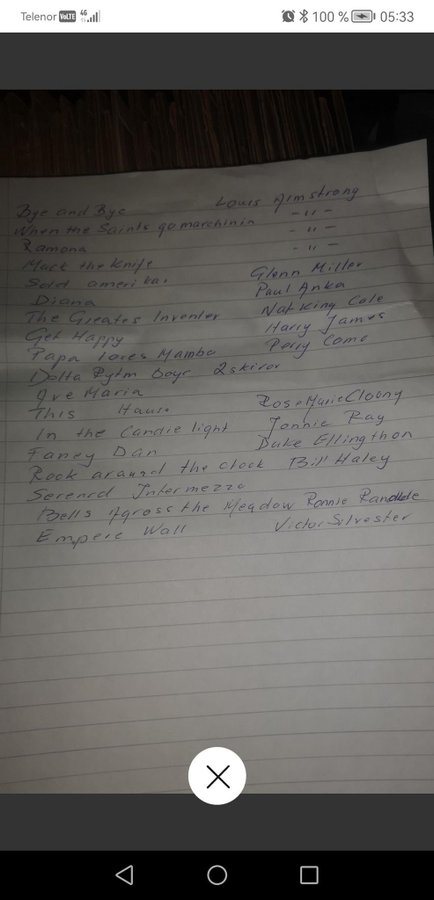 Telenor VoLTE 4G 100 % 05:33
Bye and Bye Louis Almstrong
When the Saints go marchinin - " -
Ramona - " -
Mack the Knife - " -
Sold amerikan Glenn Miller
Diana Paul Anka
The Greates Inventer Nat King Cole
Get Happy Harry James
Papa loves Mambo Perry Como
Dolta Rytm Boys 2 skivor
Ave Maria
This House Rose Marie Cloony
In the Candle light Jonnie Ray
Fancy Dan Duke Ellingthon
Rock around the clock Bill Haley
Serenad Intermezzo
Bells Agross the Meadow Ronnie Ranolde
Empere Wall Victor Silvester